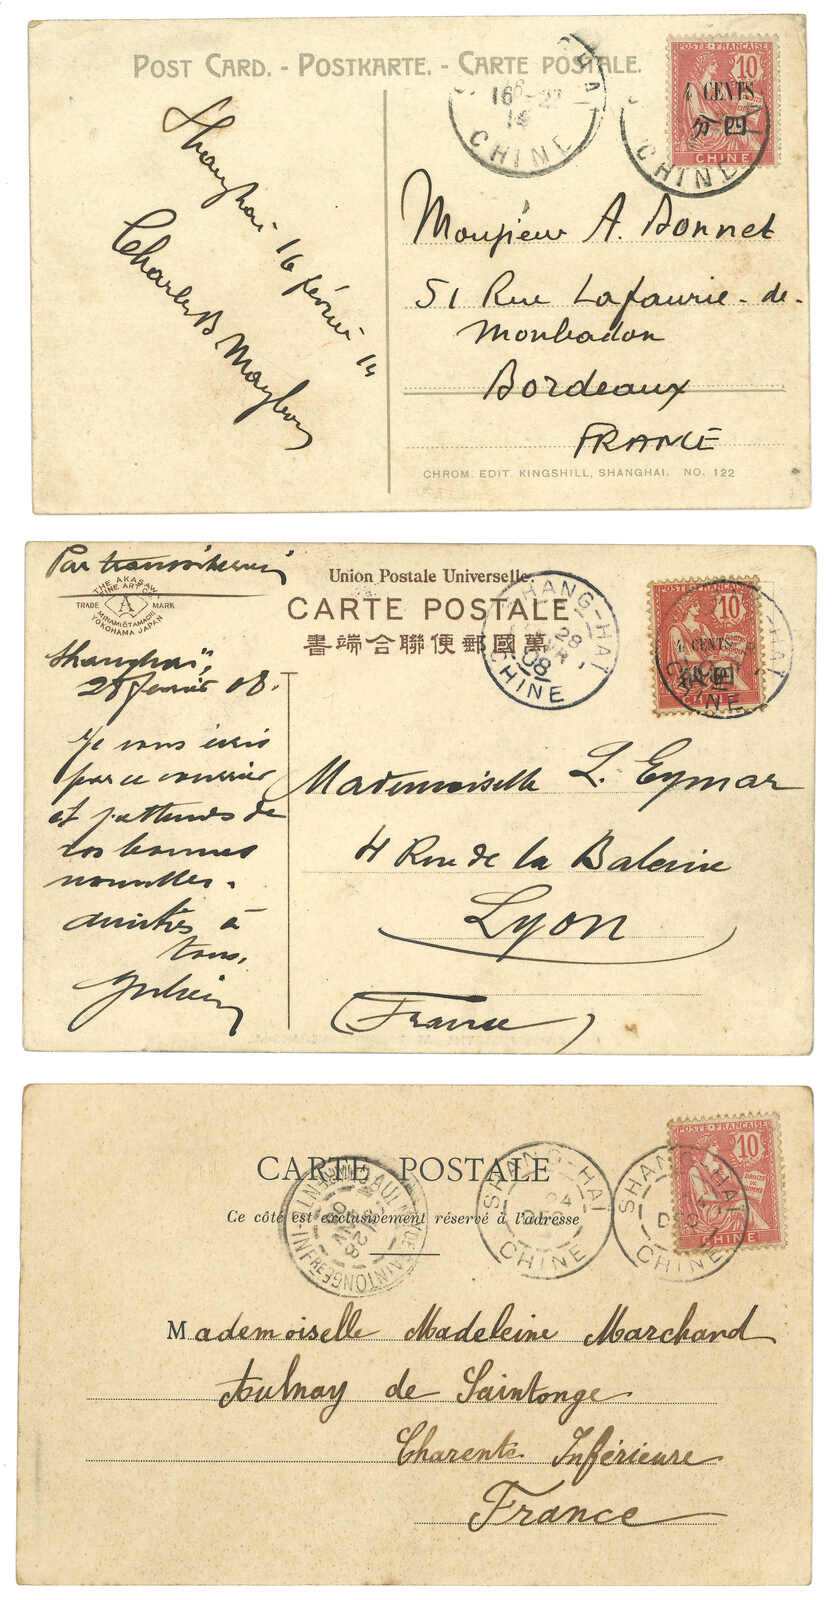 POST CARD. - POSTKARTE. - CARTE POSTALE.
16 6-2
14
CHINE
POSTE FRANÇAISE
10
4 CENTS
分四
CHINE
CHINE
Shanghai 16 février 14
Charles B Maybon
Monsieur A. Bonnet
51 Rue Lafaurie-de-
Monbadon
Bordeaux
FRANCE
CHROM. EDIT. KINGSHILL, SHANGHAI. NO. 122
Par
THE AKASAWA
FINE ART CO
TRADE A MARK
MINAMIOTAMACHI
YOKOHAMA JAPAN
Union Postale Universelle.
CARTE POSTALE
書端合聯便郵國萬
SHANG-HAI
28
08
CHINE
10
4 CENTS
分四
CHINE
Shanghaï,
28 février 08.
Je vous écris
par ce courrier
et j'attends de
vos bonnes
nouvelles.
Amitiés à
tous,
Mademoiselle L. Eymar
4 Rue de la Baleine
Lyon
(France)
CARTE POSTALE
Ce côté est exclusivement réservé à l'adresse
AULNAY DE SAINTONGE
INFRE
28
SHANG-HAI
24
DEC
CHINE
SHANG-HAI
DEC
CHINE
POSTE FRANÇAISE
10
CHINE
Mademoiselle Madeleine Marchand
Aulnay de Saintonge
Charente Inférieure
France